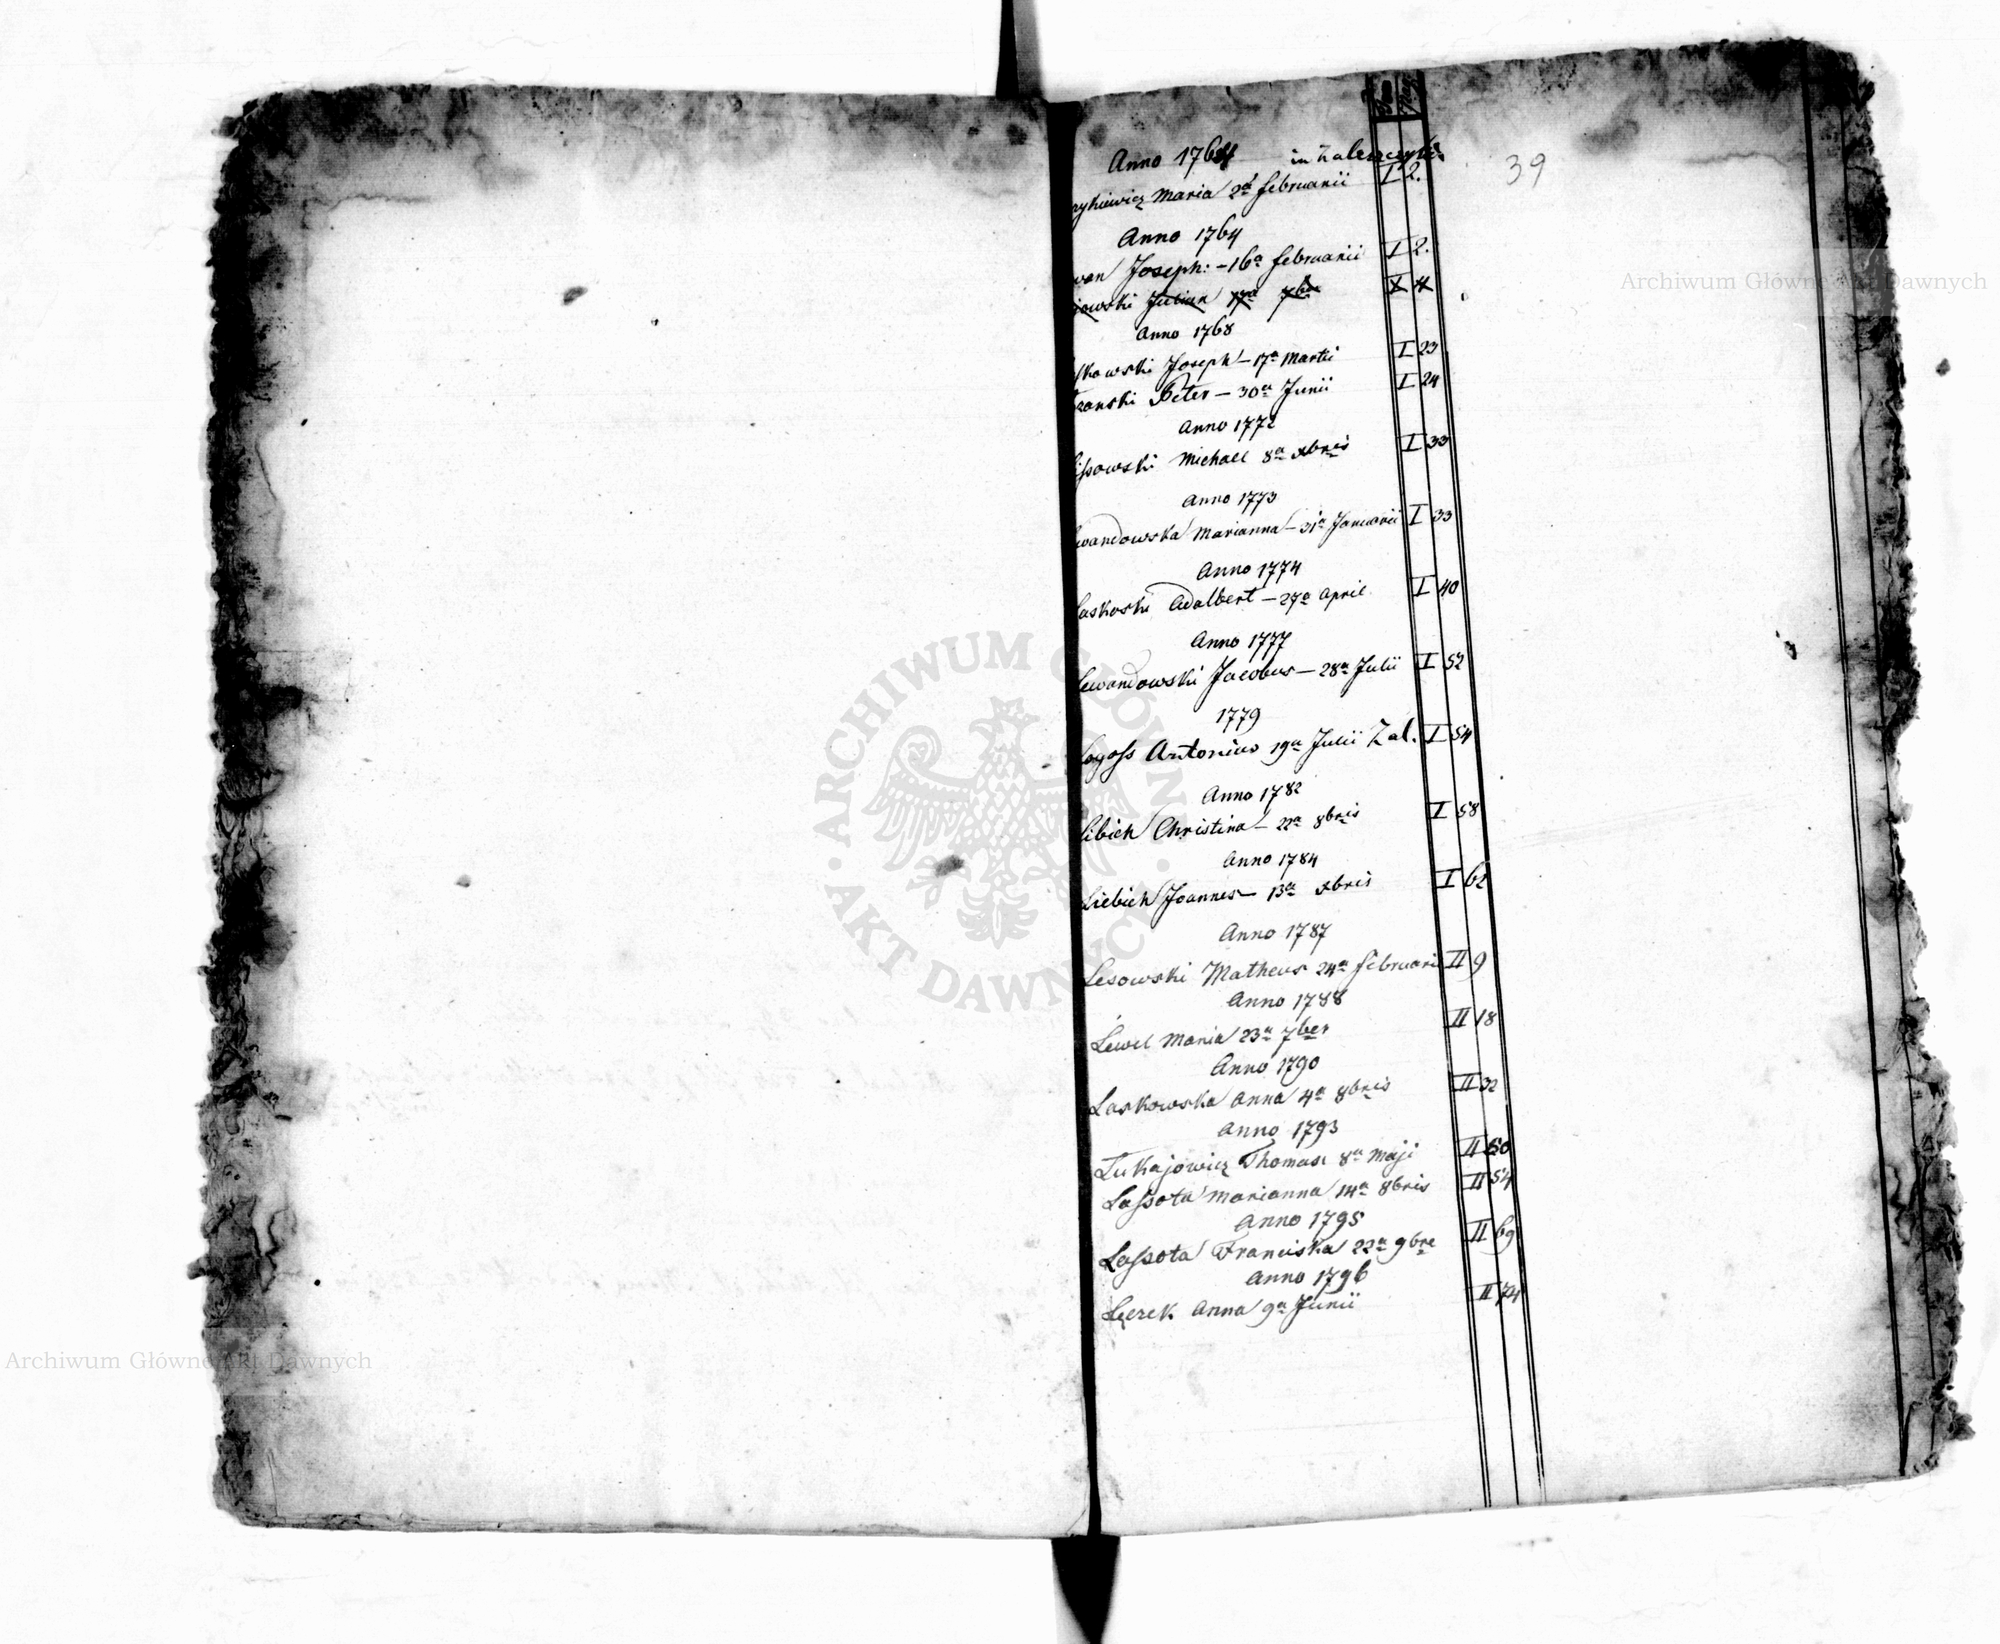 Tom Pag
Anno 1764 in Zaleszczyki
39
rykiewicz Maria 2a februarii I 2.
Anno 1764
wan Joseph: - 16a februarii I 2.
iowski Julian 17a 7bris X 4
Anno 1768
lkowski Joseph - 17a Martii I 23
rzanski Peter - 30a Junii I 24
Anno 1772
issowski Michael 8a xbris I 33
Anno 1773
ewandowska Marianna - 31a Januarii I 33
Anno 1774
Laskoski Adalbert - 27a April I 40
Anno 1777
Lewandowski Jacobus - 28a Julii I 52
1779
Antonius 19a Julii Zal. I 54
Anno 1782
Libich Christina - 22a 8bris I 58
Anno 1784
Liebich Joannes - 13a xbris I 62
Anno 1787
Lesowski Matheus 24a februarii II 9
Anno 1788
Lewel Maria 23a 7ber II 18
Anno 1790
Laskowska Anna 4a 8bris II 32
Anno 1793
Lukajowicz Thomas 8a Maji II 50
Lassota Marianna 14a 8bris II 54
Anno 1795
Lassota Franciska 22a 9bre II 69
Anno 1796
Lerek Anna 9a Junii II 74
Archiwum Główne Akt Dawnych
ARCHIWUM GŁÓWNE · AKT DAWNYCH ·
Archiwum Główne Akt Dawnych